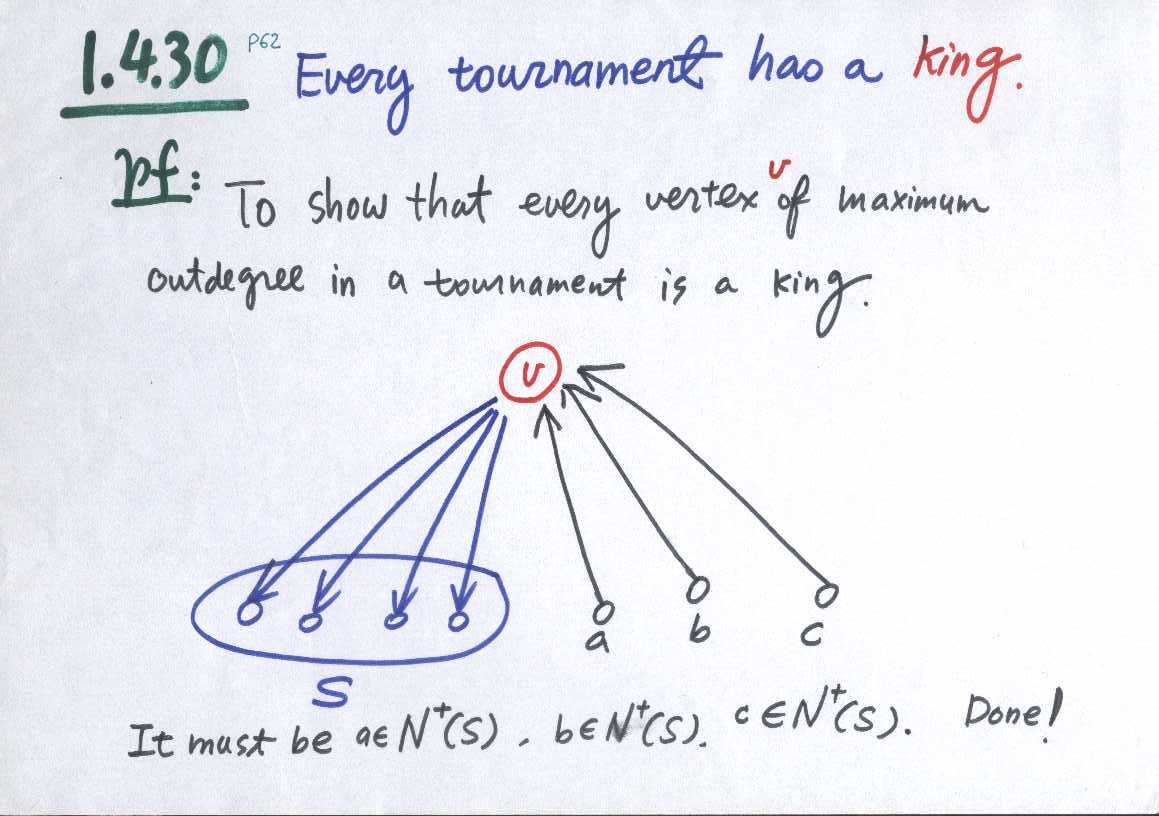 1.4.30 P62 Every tournament has a king.
pf: To show that every vertex v of maximum
outdegree in a tournament is a king.
v
a b c
S
It must be a∈N⁺(S), b∈N⁺(S). c∈N⁺(S). Done!